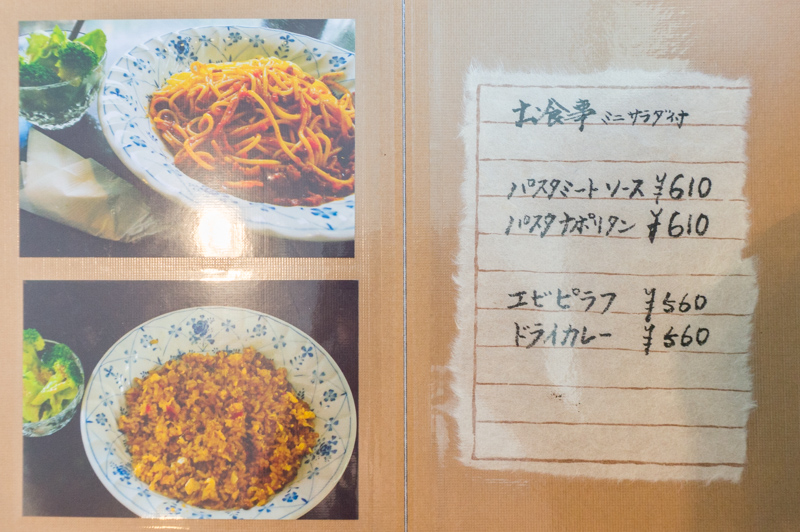 お食事 ミニサラダ付
パスタミートソース ¥610
パスタナポリタン ¥610
エビピラフ ¥560
ドライカレー ¥560